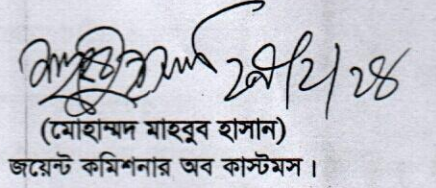 (মোহাম্মদ মাহবুব হাসান)
জয়েন্ট কমিশনার অব কাস্টমস।